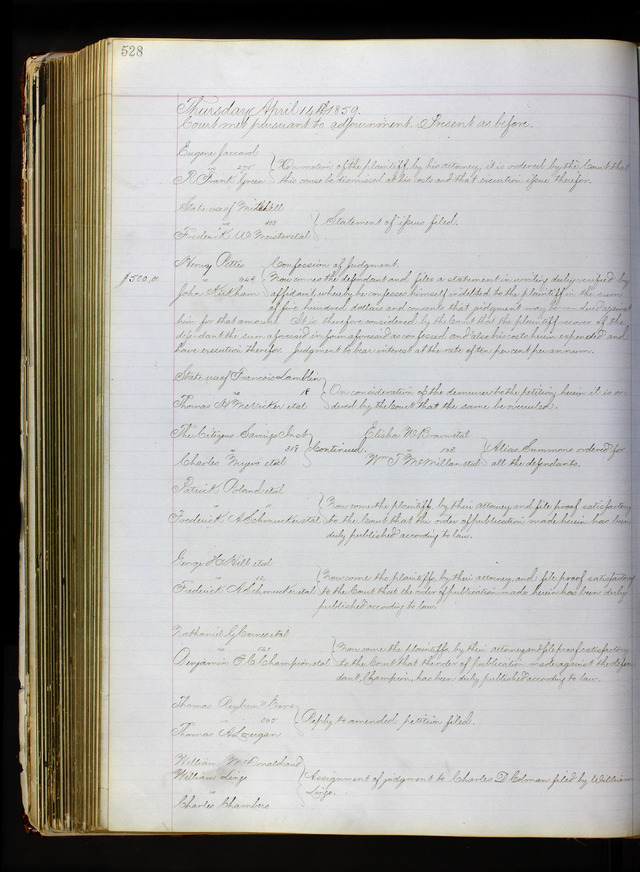 528
Thursday April 14th 1859.
Court met pursuant to adjournment. Present as before.
Eugene Jaccard
vs
R. Frank Green
On motion of the plaintiff by his attorney, it is ordered by the Court that
this cause be dismissed at his costs and that execution issue therefor.
State use of Mitchell
vs 103
Frederick W Meister etal
Statement of issues filed.
Henry Pitts
vs
John Ketcham
$500,00
Confession of Judgment.
Now comes the defendant and files a statement in writing duly verified by
affidavit, whereby he confesses himself indebted to the plaintiff in the sum
of five hundred dollars and consents that judgment may be rendered against
him for that amount. It is therefore considered by the Court that the plaintiff recover of the
defendant the sum aforesaid in form aforesaid as confessed and also his costs herein expended and
have execution therefor. Judgment to bear interest at the rate of ten per cent per annum.
State use of Francois Lamblin
vs 18
Thomas H McVicker etal
On consideration of the demurrer to the petition herein it is or-
dered by the Court that the same be overruled.
The Citizens Savings Inst
vs 318
Charles Myers etal
Continued.
Elisha W Brown etal
vs 163
Wm T McMillan etal
Alias Summons ordered for
all the defendants.
Patrick Poland etal
vs
Frederick A Schmucker etal
Now come the plaintiff, by their attorney and file proof satisfactory
to the Court that the order of publication made herein has been
duly published according to law.
George H Hill etal
vs
Frederick A Schmucker etal
Now come the plaintiffs, by their attorney, and file proof satisfactory
to the Court that the order of publication made herein has been duly
published according to law.
Nathaniel G Carnes etal
vs
Benjamin F C Champion etal
Now come the plaintiffs, by their attorney and file proof satisfactory
to the Court that the order of publication made against the defen
dant, Champion, has been duly published according to law.
Thomas
vs
Thomas A
Reply to amended petition filed.
William McDonald and
William Linze
vs
Charles Chambers
Assignment of judgment to Charles D Colman filed by William
Linze.